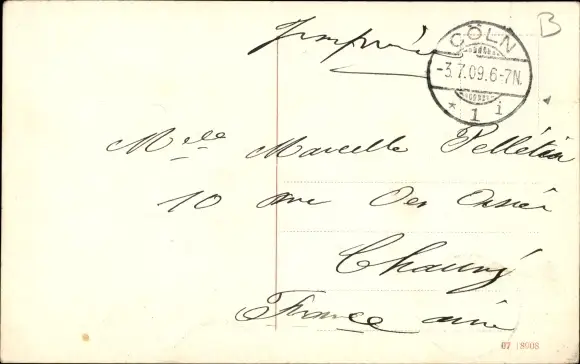 Imprimé
B
CÖLN
-3.7.09.6-7N.
* 1 i
Melle Marcelle Pelletier
10 rue des
Chauny
France Aisne
07 18908